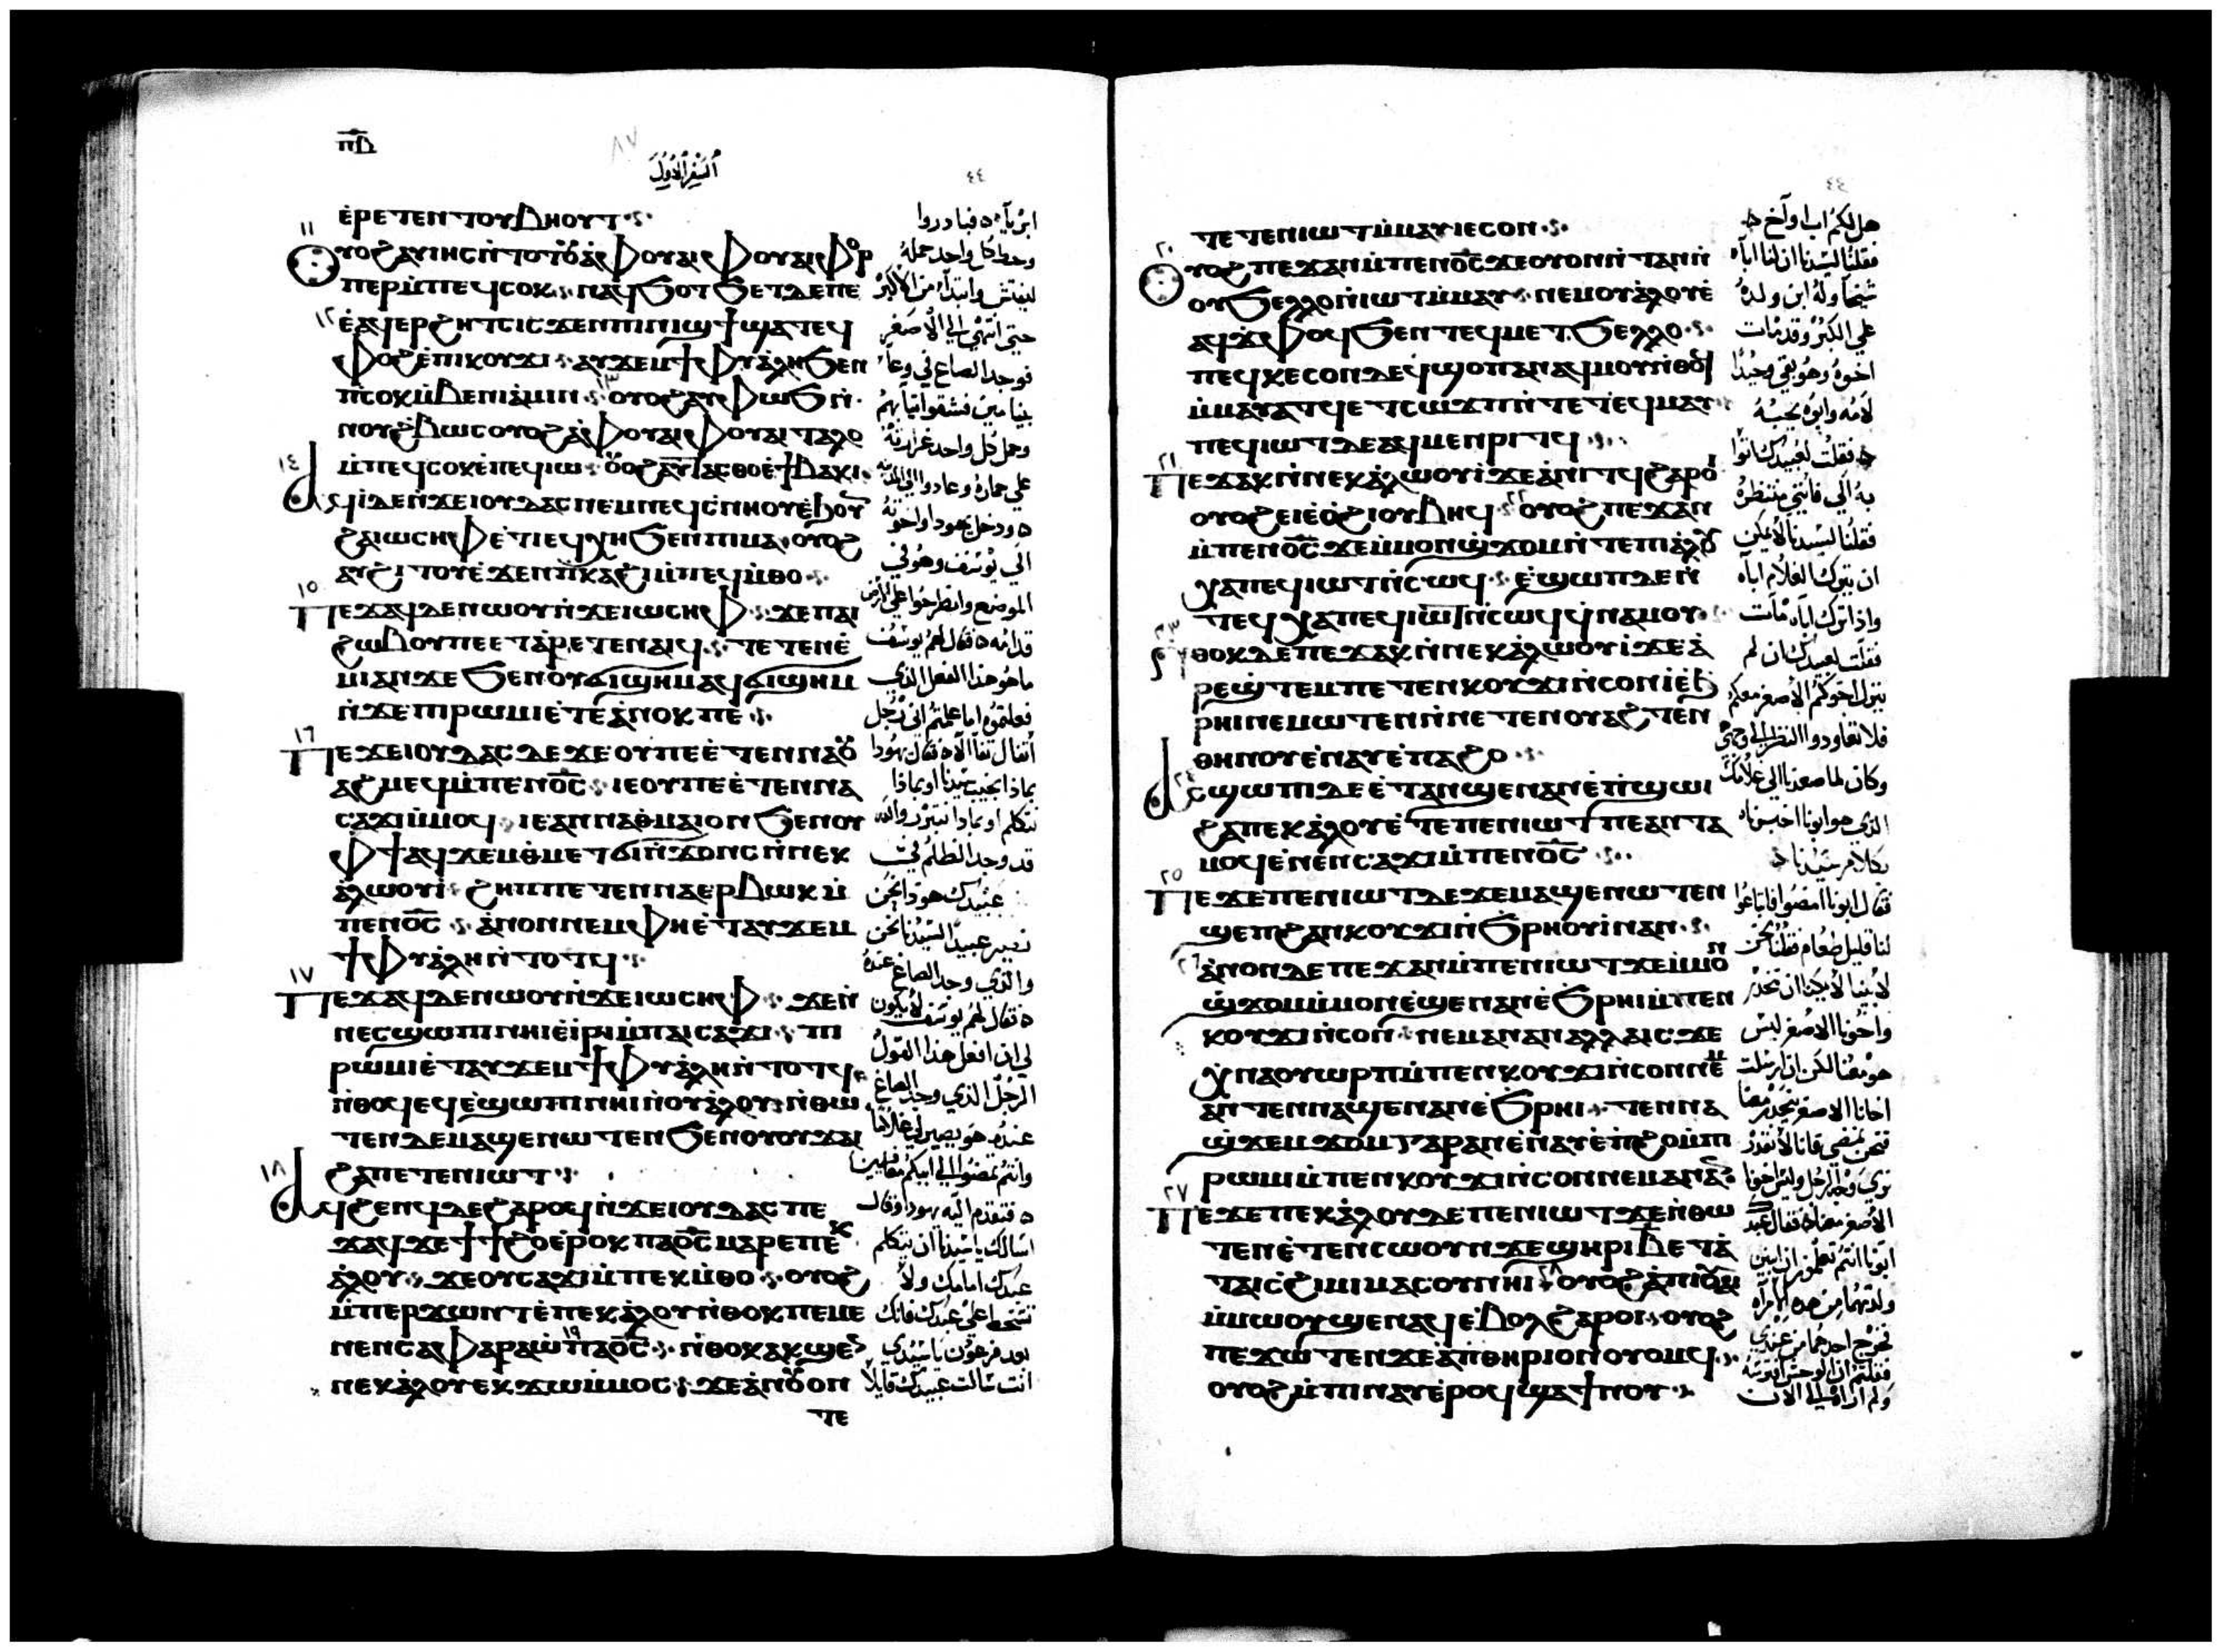 ⲡⲇ
٨٧
السفر الاول
٤٤
ⲉ̀ⲣⲉⲧⲉⲛⲧⲟⲩⲃⲏⲟⲩⲧ
١١
ⲟⲩⲟϩⲁⲩⲓⲏⲥⲛ̀ⲧⲟⲧⲟⲩⲁ̀ⲫⲟⲩⲁⲓⲫⲟⲩⲁⲓⲫⲟⲣ
ⲡⲉⲣⲙ̀ⲡⲉϥⲥⲟⲕ ⲛⲁϥϧⲟⲧϧⲉⲧⲇⲉⲡⲉ
١٢
ⲉ̀ⲁϥⲉⲣϩⲏⲧⲥⲓⲥϫⲉⲛⲡⲓⲛⲓϣϯϣⲁⲧⲉϥ
ⲫⲟϩⲉ̀ⲡⲓⲕⲟⲩϫⲓ ⲁⲩϫⲉⲙϯⲫⲩⲁ̀ⲗⲏϧⲉⲛ
١٣
ⲡⲥⲟⲕⲙ̀ⲃⲉⲛⲓⲁ̀ⲙⲓⲛ ⲟⲩⲟϩⲁⲩⲫⲱϧⲛ̀
ⲛⲟⲩϩ̀ⲃⲱⲥⲟⲩⲟϩⲁ̀ⲫⲟⲩⲁⲓⲫⲟⲩⲁⲓⲧⲁⲗⲟ
١٤
ⲙ̀ⲡⲉϥⲥⲟⲕⲉ̀ⲡⲉϥⲓⲱ ⲟⲩⲟϩⲁⲩⲧⲁⲥⲑⲟⲉ̀ϯⲃⲁⲕⲓ
ⲁϥⲓ̀ⲇⲉⲛ̀ϫⲉⲓⲟⲩⲇⲁⲥⲛⲉⲙⲛⲉϥⲥⲛⲏⲟⲩⲉ̀ϧⲟⲩⲛ
ϩⲁⲓⲱⲥⲏⲫⲉ̀ⲧⲓⲉϥⲭⲏϧⲉⲛⲡⲓⲙⲁ ⲟⲩⲟϩ
ⲁⲩϩⲓⲧⲟⲩⲉ̀ϫⲉⲛⲡ̀ⲕⲁϩⲓⲙ̀ⲡⲉϥⲙ̀ⲑⲟ
١٥
ⲡⲉϫⲁϥⲇⲉⲛⲱⲟⲩⲛ̀ϫⲉⲓⲱⲥⲏⲫ ϫⲉⲡⲁⲓ
ϩⲱⲃⲟⲩⲡⲉⲉⲧⲁ̀ⲣⲉⲧⲉⲛⲁⲓϥ ⲧⲉⲧⲉⲛⲉ̀
ⲙⲓⲁⲛϫⲉϧⲉⲛⲟⲩϭⲓϣⲏⲙⲁϥϭⲓϣⲏⲙ
ⲛ̀ϫⲉⲡⲓⲣⲱⲙⲓⲉ̀ⲧⲉⲁ̀ⲛⲟⲕⲡⲉ
١٦
ⲡⲉϫⲉⲓⲟⲩⲇⲁⲥⲇⲉϫⲉⲟⲩⲡⲉⲉ̀ⲧⲉⲛⲛⲁⲟⲩ
ⲁϩⲙⲉϥⲙ̀ⲡⲉⲛⲟ̅ⲥ̅ ⲓⲉⲟⲩⲡⲉⲉ̀ⲧⲉⲛⲛⲁ
ⲥⲁϫⲓⲙ̀ⲙⲟϥ ⲓⲉⲁⲛⲛⲁⲑⲙⲁⲓⲟⲛϧⲉⲛⲟⲩ
ⲫϯⲁϥϫⲉⲙⲑⲙⲉⲧϭⲓⲛ̀ϫⲟⲛⲥⲛ̀ⲛⲉⲕ
ⲁ̀ⲗⲱⲟⲩⲓ̀ ϩⲏⲡⲡⲉⲧⲉⲛⲛⲁⲉⲣⲃⲱⲕⲙ̀
ⲡⲉⲛⲟ̅ⲥ̅ ⲁ̀ⲛⲟⲛⲛⲉⲙⲫⲏⲉ̀ⲧⲁⲩϫⲉⲙ
ϯⲫⲩⲁ̀ⲗⲏⲛ̀ⲧⲟⲧϥ
١٧
ⲡⲉϫⲁϥⲇⲉⲛⲱⲟⲩⲛ̀ϫⲉⲓⲱⲥⲏⲫ ϫⲉⲛ̀
ⲛⲉⲥϣⲱⲡⲓⲛⲏⲓⲉ̀ⲓ̀ⲣⲓⲙ̀ⲡⲁⲓⲥⲁϫⲓ ⲡⲓ
ⲣⲱⲙⲓⲉ̀ⲧⲁⲩϫⲉⲙϯⲫⲩⲁ̀ⲗⲏⲛ̀ⲧⲟⲧϥ
ⲛ̀ⲑⲟϥⲉϥⲉ̀ϣⲱⲡⲓⲛⲏⲓⲛ̀ⲟⲩⲁ̀ⲗⲟⲩ ⲛ̀ⲑⲱ
ⲧⲉⲛⲇⲉⲙⲁϣⲉⲛⲱⲧⲉⲛϧⲉⲛⲟⲩⲟⲩϫⲁⲓ
ϩⲁⲡⲉⲧⲉⲛⲓⲱⲧ
١٨
ⲁϥϧⲉⲛϥⲇⲉϩⲁⲣⲟϥⲛ̀ϫⲉⲓⲟⲩⲇⲁⲥⲡⲉ
ϫⲁϥϫⲉϯϯϩⲟⲉ̀ⲣⲟⲕⲡⲁⲟ̅ⲥ̅ⲙⲁⲣⲉⲡⲉⲕ
ⲁ̀ⲗⲟⲩ ϫⲉⲟⲩⲥⲁϫⲓⲙ̀ⲡⲉⲕⲙ̀ⲑⲟ ⲟⲩⲟϩ
ⲙ̀ⲡⲉⲣϫⲱⲛⲧⲉ̀ⲡⲉⲕⲁ̀ⲗⲟⲩⲛ̀ⲑⲟⲕⲡⲉⲙⲉ
١٩
ⲛⲉⲛⲥⲁⲫⲁⲣⲁⲱ̀ⲡⲁⲟ̅ⲥ̅ ⲛ̀ⲑⲟⲕⲁⲕϣⲉⲛ
ⲛⲉⲕⲁ̀ⲗⲟⲩⲉⲕϫⲱⲙ̀ⲙⲟⲥ ϫⲉⲁ̀ⲛⲟⲩⲟⲛ
ⲧⲉ
ابرياء فبادروا
وحط كل واحد حمله
ليفتش وابتدا من الاكبر
حتى انتهى الى الاصغر
فوجد الصاع في وعاء
بنيامين فشقوا ثيابهم
وحمل كل واحد غرارته
على حماره وعادوا الى المدينة
ودخل يهودا واخوته
الى يوسف وهو في
الموضع وانطرحوا على الارض
قدامه فقال لهم يوسف
ما هو هذا الفعل الذي
فعلتموه اما علمتم انى رجل
اتفال تفاآلا فقال يهودا
بماذا نجيب سيدنا او بماذا
نتكلم او بماذا نتبرر والله
قد وجد الظلم في
عبيدك هوذا نحن
نصير عبيدا لسيدنا نحن
والذي وجد الصاع عنده
فقال لهم يوسف لا يكون
لي ان افعل هذا القول
الرجل الذي وجد الصاع
عنده هو يصير لي غلاما
وانتم تمضوا الى ابيكم سالمين
فتقدم اليه يهودا وقال
اسالك يا سيدنا ان يتكلم
عبدك امامك ولا
تسخط على عبدك فانك
بعد فرعون يا سيدي
انت سالت عبيدك قايلا
٤٤
ⲧⲉⲧⲉⲛⲓⲱⲧⲙ̀ⲙⲁⲩⲓⲉⲥⲟⲛ
٢٠
ⲟⲩⲟϩⲡⲉϫⲁⲛⲙ̀ⲡⲉⲛⲟ̅ⲥ̅ϫⲉⲟⲩⲟⲛⲛ̀ⲧⲁⲛⲛ̀
ⲟⲩϧⲉⲗⲗⲟⲛ̀ⲓⲱⲧⲙ̀ⲙⲁⲩ ⲛⲉⲙⲟⲩⲁ̀ⲗⲟⲩⲉ̀
ⲁϥϫ̀ⲫⲟϥϧⲉⲛⲧⲉϥⲙⲉⲧϧⲉⲗⲗⲟ
ⲡⲉϥⲕⲉⲥⲟⲛⲇⲉϥϣⲟⲡⲁⲛⲁϥⲙⲟⲩⲛ̀ⲑⲟϥ
ⲙ̀ⲙⲁⲩⲁⲧϥⲉⲧⲥⲱϫⲡⲛ̀ⲧⲉⲧⲉϥⲙⲁⲩ
ⲡⲉϥⲓⲱⲧⲇⲉⲁϥⲙⲉⲛⲣⲓⲧϥ
٢١
ⲡⲉϫⲁⲕⲛ̀ⲛⲉⲕⲁ̀ⲗⲱⲟⲩⲓ̀ϫⲉⲁ̀ⲛⲓⲧϥϩⲁⲣⲟⲓ
٢٢
ⲟⲩⲟϩⲉⲓⲉ̀ϩ̀ⲓⲟⲩⲃⲏϥ ⲟⲩⲟϩⲡⲉϫⲁⲛ
ⲙ̀ⲡⲉⲛⲟ̅ⲥ̅ϫⲉⲙ̀ⲙⲟⲛϣ̀ϫⲟⲙⲛ̀ⲧⲉⲡⲓⲁ̀ⲗⲟⲩ
ⲭⲁⲡⲉϥⲓⲱⲧⲛ̀ⲥⲱϥ ⲉ̀ϣⲱⲡⲇⲉⲛ̀
ⲧⲉϥⲭⲁⲡⲉϥⲓⲱⲧⲛ̀ⲥⲱϥϥ̀ⲛⲁⲙⲟⲩ
٢٣
ⲛ̀ⲑⲟⲕⲇⲉⲡⲉϫⲁⲕⲛ̀ⲛⲉⲕⲁ̀ⲗⲱⲟⲩⲓ̀ϫⲉⲁ̀
ⲣⲉϣ̀ⲧⲉⲙⲡⲉⲧⲉⲛⲕⲟⲩϫⲓⲛ̀ⲥⲟⲛⲓ̀ⲉ̀ϧ
ⲣⲏⲓⲛⲉⲙⲱⲧⲉⲛⲛ̀ⲛⲉⲧⲉⲛⲟⲩⲁϩⲧⲉⲛ
ⲑⲏⲛⲟⲩⲉ̀ⲛⲁⲩⲉ̀ⲡⲁϩⲟ
٢٤
ⲁⲥϣⲱⲡⲓⲇⲉⲉ̀ⲧⲁⲛϣⲉⲛⲁⲛⲉ̀ⲡ̀ϣⲱⲓ
ϩⲁⲡⲉⲕⲁ̀ⲗⲟⲩⲉ̀ⲧⲉⲡⲉⲛⲓⲱⲧⲡⲉⲁⲛⲧⲁ
ⲙⲟϥⲉ̀ⲛⲉⲛⲥⲁϫⲓⲙ̀ⲡⲉⲛⲟ̅ⲥ̅
٢٥
ⲡⲉϫⲉⲡⲉⲛⲓⲱⲧⲇⲉϫⲉⲙⲁϣⲉⲛⲱⲧⲉⲛ
ϣⲉⲡϩⲁⲛⲕⲟⲩϫⲓⲛ̀ϧⲣⲏⲟⲩⲓ̀ⲛⲁⲛ
٢٦
ⲁ̀ⲛⲟⲛⲇⲉⲡⲉϫⲁⲛⲙ̀ⲡⲉⲛⲓⲱⲧϫⲉⲙ̀ⲙⲟⲛ
ϣ̀ϫⲟⲙⲙ̀ⲙⲟⲛⲉ̀ϣⲉⲛⲁⲛⲉ̀ϧⲣⲏⲓⲙ̀ⲡⲉⲛ
ⲕⲟⲩϫⲓⲛ̀ⲥⲟⲛ ⲛⲉⲙⲁⲛⲁⲛⲁⲗⲗⲁⲓⲥϫⲉ
ⲭⲛⲁⲟⲩⲱⲣⲡⲙ̀ⲡⲉⲛⲕⲟⲩϫⲓⲛ̀ⲥⲟⲛⲛⲉⲙ
ⲁⲛⲧⲉⲛⲛⲁϣⲉⲛⲁⲛⲉ̀ϧⲣⲏⲓ ⲧⲉⲛⲛⲁ
ϣ̀ϫⲉⲙϫⲟⲙⲅⲁⲣⲁⲛⲉ̀ⲛⲁⲩⲉ̀ⲡ̀ϩⲟⲙ̀ⲡⲓ
ⲣⲱⲙⲓⲙ̀ⲡⲉⲛⲕⲟⲩϫⲓⲛ̀ⲥⲟⲛⲛⲉⲙⲁⲛⲁⲛ
٢٧
ⲡⲉϫⲉⲡⲉⲕⲁ̀ⲗⲟⲩⲇⲉⲡⲉⲛⲓⲱⲧϫⲉⲛ̀ⲑⲱ
ⲧⲉⲛⲉ̀ⲧⲉⲛⲥⲱⲟⲩⲛϫⲉϣⲏⲣⲓⲃ̅ⲉⲧⲁ̀
٢٨
ⲧⲁⲓⲥϩⲓⲙⲓⲙⲁⲥⲟⲩⲛⲏⲓ ⲟⲩⲟϩⲁ̀ⲡⲓⲟⲩⲁⲓ
ⲙ̀ⲙⲱⲟⲩϣⲉⲛⲁϥⲉ̀ⲃⲟⲗϩⲁⲣⲟⲓ ⲟⲩⲟϩ
ⲡⲉϫⲱⲧⲉⲛϫⲉⲁ̀ⲡ̀ⲑⲏⲣⲓⲟⲛⲟⲩⲟⲙϥ
ⲟⲩⲟϩⲙ̀ⲡⲓⲛⲁⲩⲉ̀ⲣⲟϥϣⲁϯⲛⲟⲩ
هل لكم اب او اخ
فقلنا لسيدنا ان لنا اباً
شيخاً وله ابن ولده
على الكبر وقد مات
اخوه وهو بقي وحيداً
لامه وابوه يحبه
فقلت لعبيدك ايتوا
به الي فانني منتظره
فقلنا لسيدنا لا يمكن
ان يترك الغلام اباه
واذا ترك اباه مات
فقلت لعبيدك ان لم
ينزل اخوكم الاصغر معكم
فلا تعاودوا النظر الى وجهي
وكان لما صعدنا الى غلامك
الذي هو ابونا اخبرناه
بكلام سيدنا
فقال ابونا امضوا فابتاعوا
لنا قليل طعام فقلنا نحن
لابينا لا يمكنا ان نحدر
واخونا الاصغر ليس
هو معنا لكن ان ارسلت
اخانا الاصغر ينحدر معنا
فنحن نمضي فانا لا نقدر
نرى وجه الرجل وليس اخونا
الاصغر معنا فقال عبدك
ابونا انتم تعلمون ان ابنين
ولدتهما من هذه الامراه
فخرج احدهما من عندي
فقلتم ان الوحش افترسه
ولم اراه الى الان